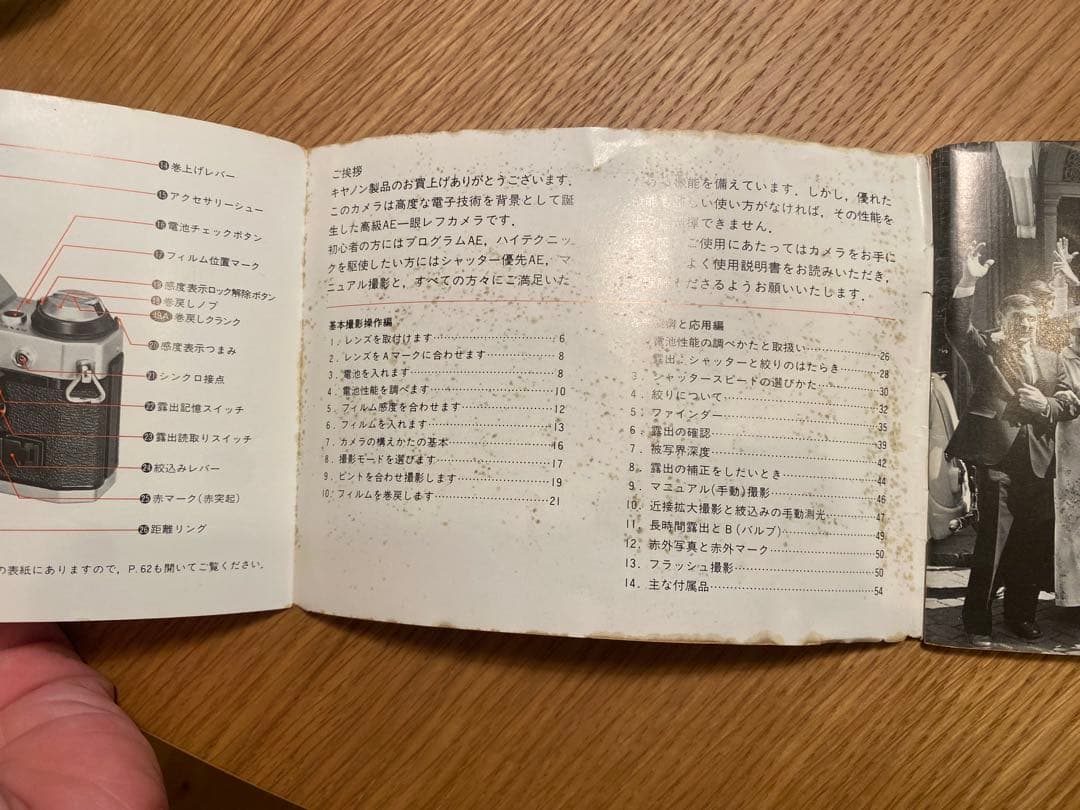 ⑭巻上げレバー
⑮アクセサリーシュー
⑯電池チェックボタン
⑰フィルム位置マーク
⑱感度表示ロック解除ボタン
⑲巻戻しノブ
⑲A巻戻しクランク
⑳感度表示つまみ
㉑シンクロ接点
㉒露出記憶スイッチ
㉓露出読取りスイッチ
㉔絞込みレバー
㉕赤マーク(赤突起)
㉖距離リング
の表紙にありますので，P.62も開いてご覧ください．
ご挨拶
キヤノン製品のお買上げありがとうございます．
このカメラは高度な電子技術を背景として誕
生した高級AE一眼レフカメラです．
初心者の方にはプログラムAE，ハイテクニッ
クを駆使したい方にはシャッター優先AE，マ
ニュアル撮影と，すべての方々にご満足いた
機能を備えています．しかし，優れた
しい使い方がなければ，その性能を
揮できません．
ご使用にあたってはカメラをお手に
よく使用説明書をお読みいただき，
くださるようお願いいたします．
基本撮影操作編
1．レンズを取付けます 6
2．レンズをAマークに合わせます 8
3．電池を入れます 8
4．電池性能を調べます 10
5．フィルム感度を合わせます 12
6．フィルムを入れます 13
7．カメラの構えかたの基本 16
8．撮影モードを選びます 17
9．ピントを合わせ撮影します 19
10．フィルムを巻戻します 21
と応用編
電池性能の調べかたと取扱い 26
露出：シャッターと絞りのはたらき 28
3．シャッタースピードの選びかた 30
4．絞りについて 32
5．ファインダー 35
6．露出の確認 39
7．被写界深度 42
8．露出の補正をしたいとき 44
9．マニュアル(手動)撮影 46
10．近接拡大撮影と絞込みの手動測光 47
11．長時間露出とB(バルブ) 49
12．赤外写真と赤外マーク 50
13．フラッシュ撮影 50
14．主な付属品 54